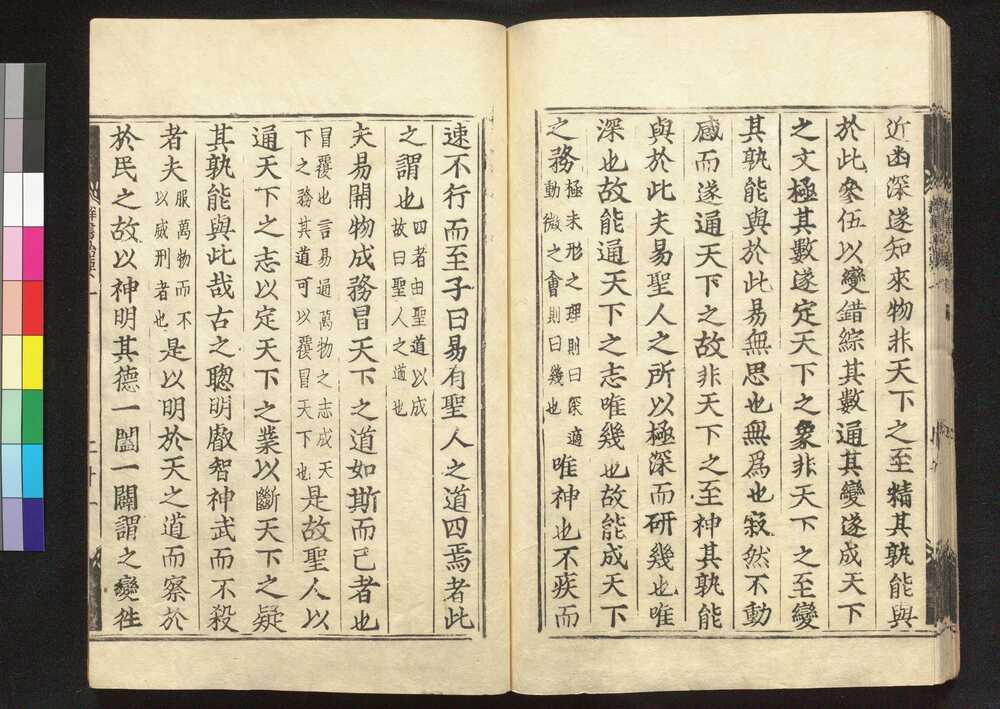 近幽深遂知來物非天下之至精其孰能與
於此參伍以變錯綜其數通其變遂成天下
之文極其數遂定天下之象非天下之至變
其孰能與於此易無思也無爲也寂然不動
感而遂通天下之故非天下之至神其孰能
與於此夫易聖人之所以極深而研幾也唯
深也故能通天下之志唯幾也故能成天下
之務極未形之理則曰深適動微之會則曰幾也唯神也不疾而
速不行而至子曰易有聖人之道四焉者此
之謂也四者由聖道以成故曰聖人之道也
夫易開物成務冒天下之道如斯而已者也
冒覆也言易通萬物之志成天下之務其道可以覆冒天下也是故聖人以
通天下之志以定天下之業以斷天下之疑
其孰能與此哉古之聰明叡智神武而不殺
者夫服萬物而不以威刑者也是以明於天之道而察於
於民之故以神明其德一闔一闢謂之變徃